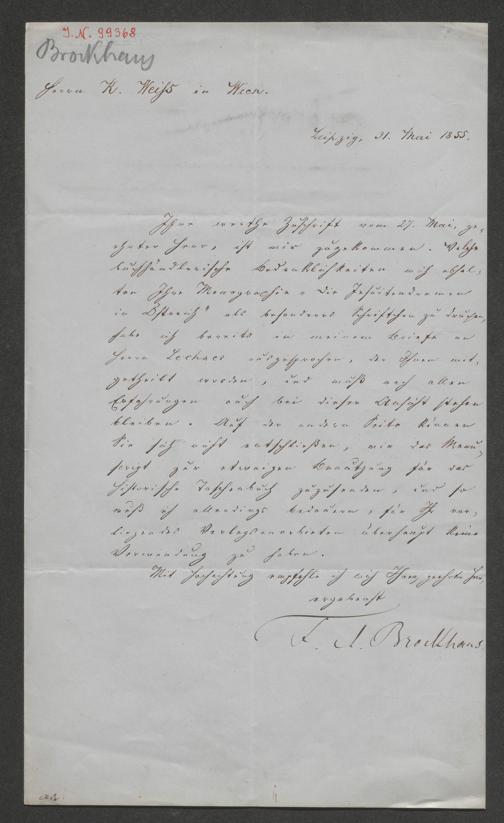 I.N. 99368
Brockhaus
Herrn K. Weiß in Wien.
Leipzig, 31. Mai 1855.
Ihre werthe Zuschrift vom 27. Mai, ge-
ehrter Herr, ist mir zugekommen. Welche
buchhändlerische Bedenklichkeiten mich abhal-
ten Ihre Monographie „Die Jesuitendramen
in Österreich" als besonderes Schriftchen zu drucken,
habe ich bereits in meinem Briefe an
Herrn Lechner ausgesprochen, der Ihnen mit-
getheilt worden, und muß nach allen
Erfahrungen auch bei dieser Ansicht stehen
bleiben. Auf der andern Seite können
Sie sich nicht entschließen, mir das Manu-
script zur etwaigen Benutzung für das
historische Taschenbuch zuzusenden, und so
muß ich allerdings bedauern, für Ihr vor-
liegendes Verlagsanerbieten überhaupt keine
Verwendung zu haben.
Mit Hochachtung empfehle ich mich Ihnen, geehrter Herr,
ergebenst
F. A. Brockhaus